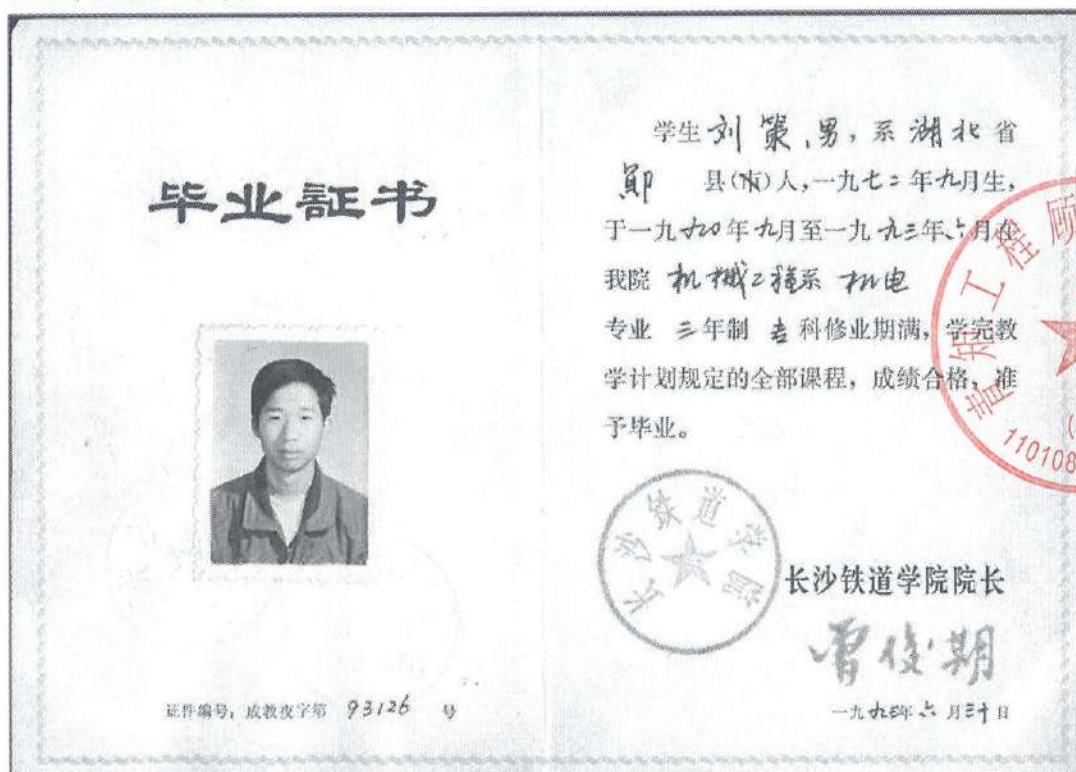 毕业証书
证件编号：成教夜字第 93126 号
学生 刘策，男，系 湖北 省
郧 县(市)人，一九七二年九月生，
于一九九〇年九月至一九九三年六月在
我院 机械工程系 机电
专业 三年制 专科修业期满，学完教
学计划规定的全部课程，成绩合格，准
予毕业。
长沙铁道学院
长沙铁道学院院长
曾俊期
一九九三年六月三十日
工程顾
110108